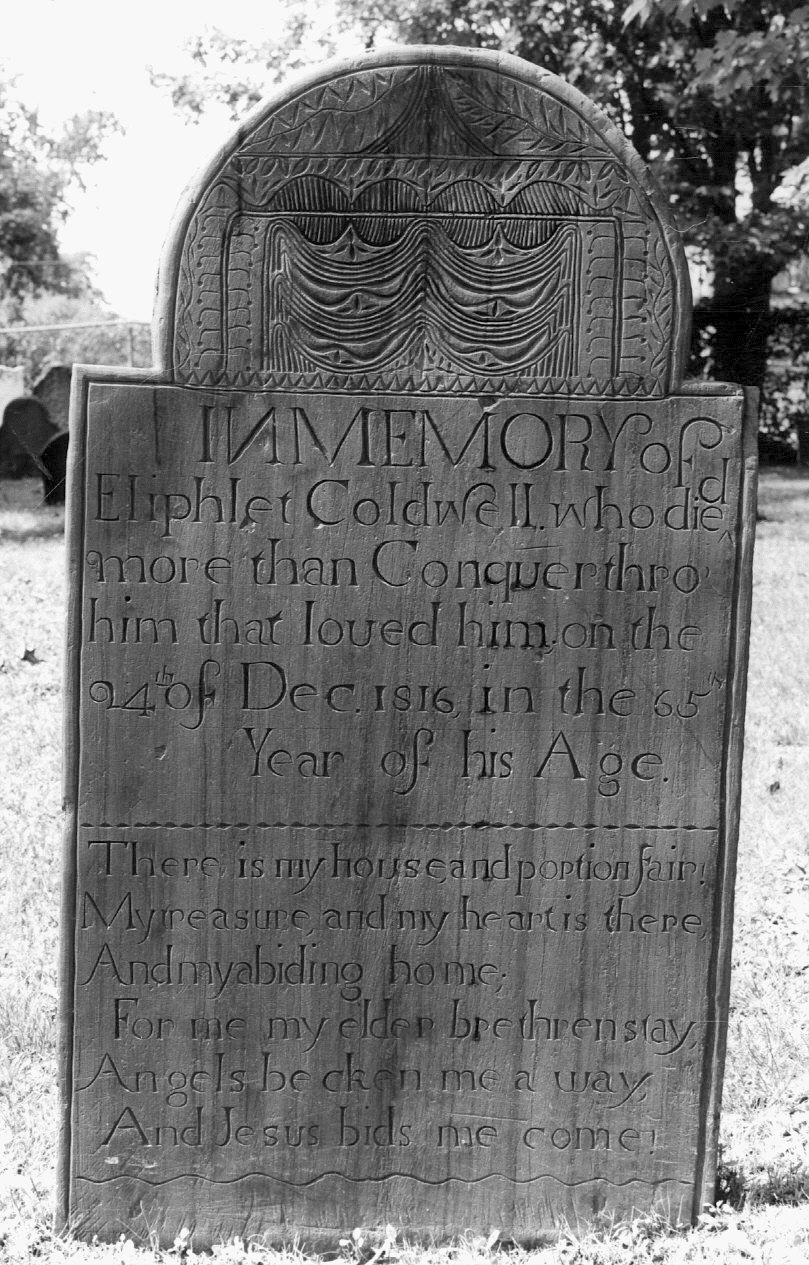 IN MEMORY of
Eliphlet Coldwell. who died
more than Conquer thro'
him that loued him, on the
24th of Dec. 1816, in the 65th
Year of his Age.
There, is my house and portion fair!
My treasure, and my heart is there,
And my abiding home;
For me my elder brethren stay,
Angels becken me a way,
And Jesus bids me come!